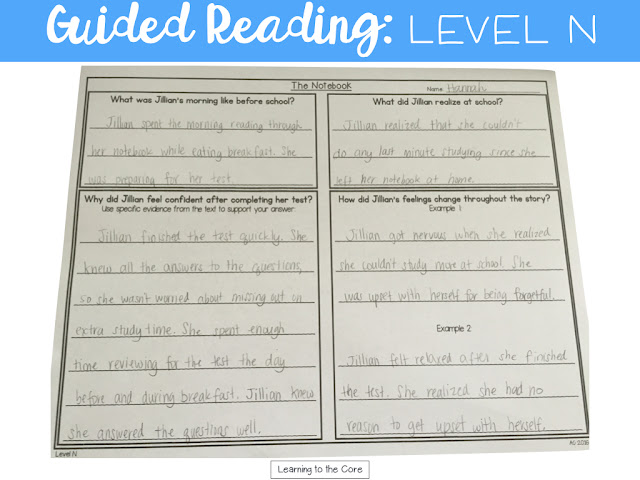 Guided Reading: LEVEL N
The Notebook
Name Hannah
What was Jillian's morning like before school?
Jillian spent the morning reading through
her notebook while eating breakfast. She
was preparing for her test.
What did Jillian realize at school?
Jillian realized that she couldn't
do any last minute studying since she
left her notebook at home.
Why did Jillian feel confident after completing her test?
Use specific evidence from the text to support your answer.
Jillian finished the test quickly. She
knew all the answers to the questions,
so she wasn't worried about missing out on
extra study time. She spent enough
time reviewing for the test the day
before and during breakfast. Jillian knew
she answered the questions well.
How did Jillian's feelings change throughout the story?
Example 1
Jillian got nervous when she realized
she couldn't study more at school. She
was upset with herself for being forgetful.
Example 2
Jillian felt relaxed after she finished
the test. She realized she had no
reason to get upset with herself.
Level N
AG 2016
Learning to the Core